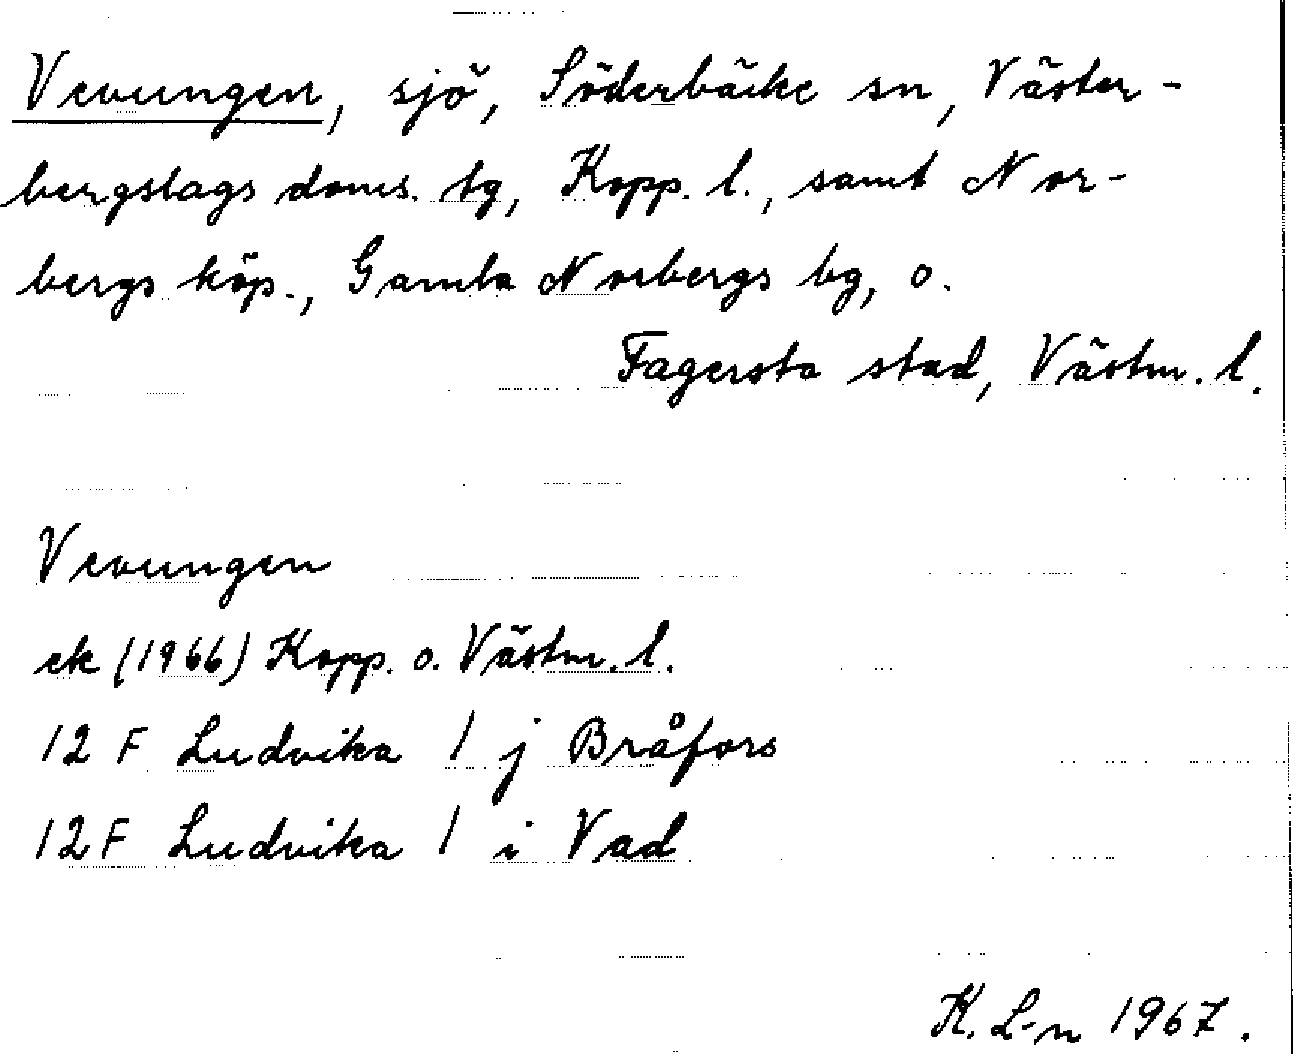 Vevungen, sjö, Söderbärke sn, Väster-
bergslags doms. tg, Kopp. l., samt Nor-
bergs köp., Gamla Norbergs bg, o.
Fagersta stad, Västm. l.
Vevungen
ek (1966) Kopp. o. Västm. l.
12 F Ludvika 1 j Bråfors
12 F Ludvika 1 i Vad
K. L-n 1967.